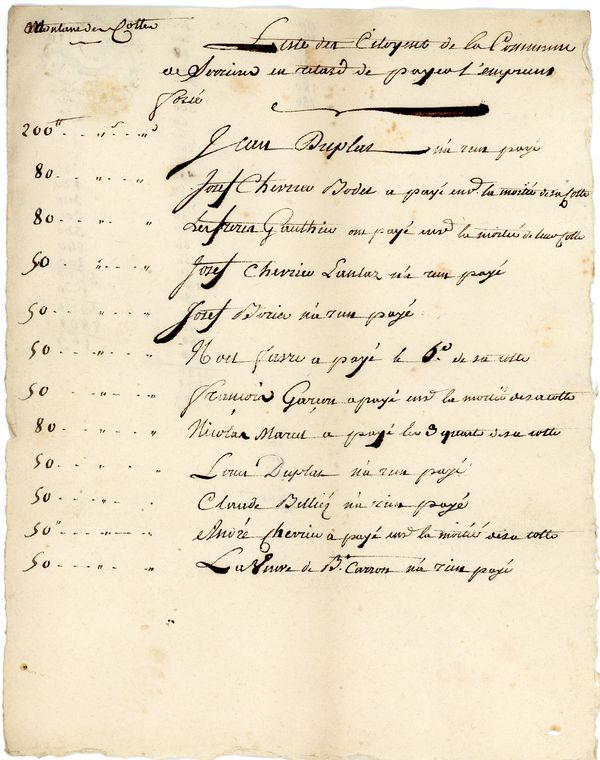 Montant des Cottes
Liste des Citoyens de la Commune
de en retard de payer l'emprunt
forcé
200ᵗᵗ . . „ˢ . . „ᵈ Jean Duplat n'a rien payé
80 . . . „ . . „ Josef Chevrier Bodet a payé envᵒⁿ la moitié de sa Cotte
80 . . . „ . . „ Les freres Gauthier ont payé envᵒⁿ la moitié de leur Cotte
50 . . . „ . . „ Josef Chevrier Lantaz n'a rien payé
50 . . . „ . . „ Josef n'a rien payé
50 . . . „ . . „ Noel Favre a payé le 6.ᵉ de sa cotte
50 . . . „ . . „ François Garçon a payé envᵒⁿ la moitié de sa cotte
80 . . . „ . . „ Nicolas Maret a payé les 3 quarts de sa cotte
50 . . . „ . . „ Louis Duplat n'a rien payé
50 . . . „ . . Claude n'a rien payé
50 . . . „ . . „ André Chevrier a payé envᵒⁿ la moitié de sa cotte
50 . . . „ . . „ La Veuve de B.ᵈ Carron n'a rien payé